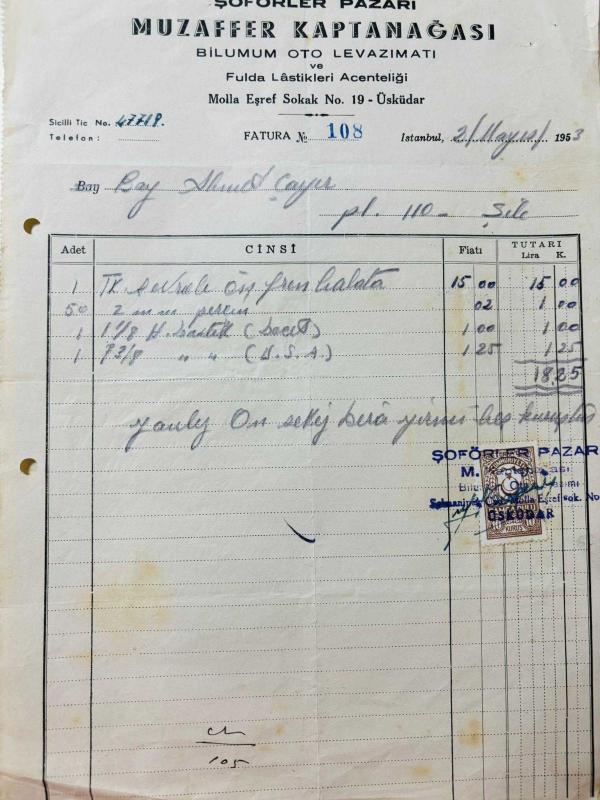 ŞOFÖRLER PAZARI
MUZAFFER KAPTANAĞASI
BİLUMUM OTO LEVAZIMATI
ve
Fulda Lâstikleri Acenteliği
Molla Eşref Sokak No. 19 - Üsküdar
Sicilli Tic No. 47718.
Telefon :
FATURA № 108
İstanbul, 2/Mayıs/1953
Bay Bay Ahmet Çayır
pl. 110- Şile
Adet CİNSİ Fiatı TUTARI
Lira K.
1 Tk ön fren balata 15 00 15 00
50 2 mm perçin 02 1 00
1 1 1/8 H. 1 00 1 00
1 7 3/8 " " (U.S.A.) 1 25 1 25
18.25
yalnız On sekiz lira yirmi beş kuruştur
ŞOFÖRLER PAZARI
M.
Molla Eşref sok. No
ÜSKÜDAR
KURUŞ
105